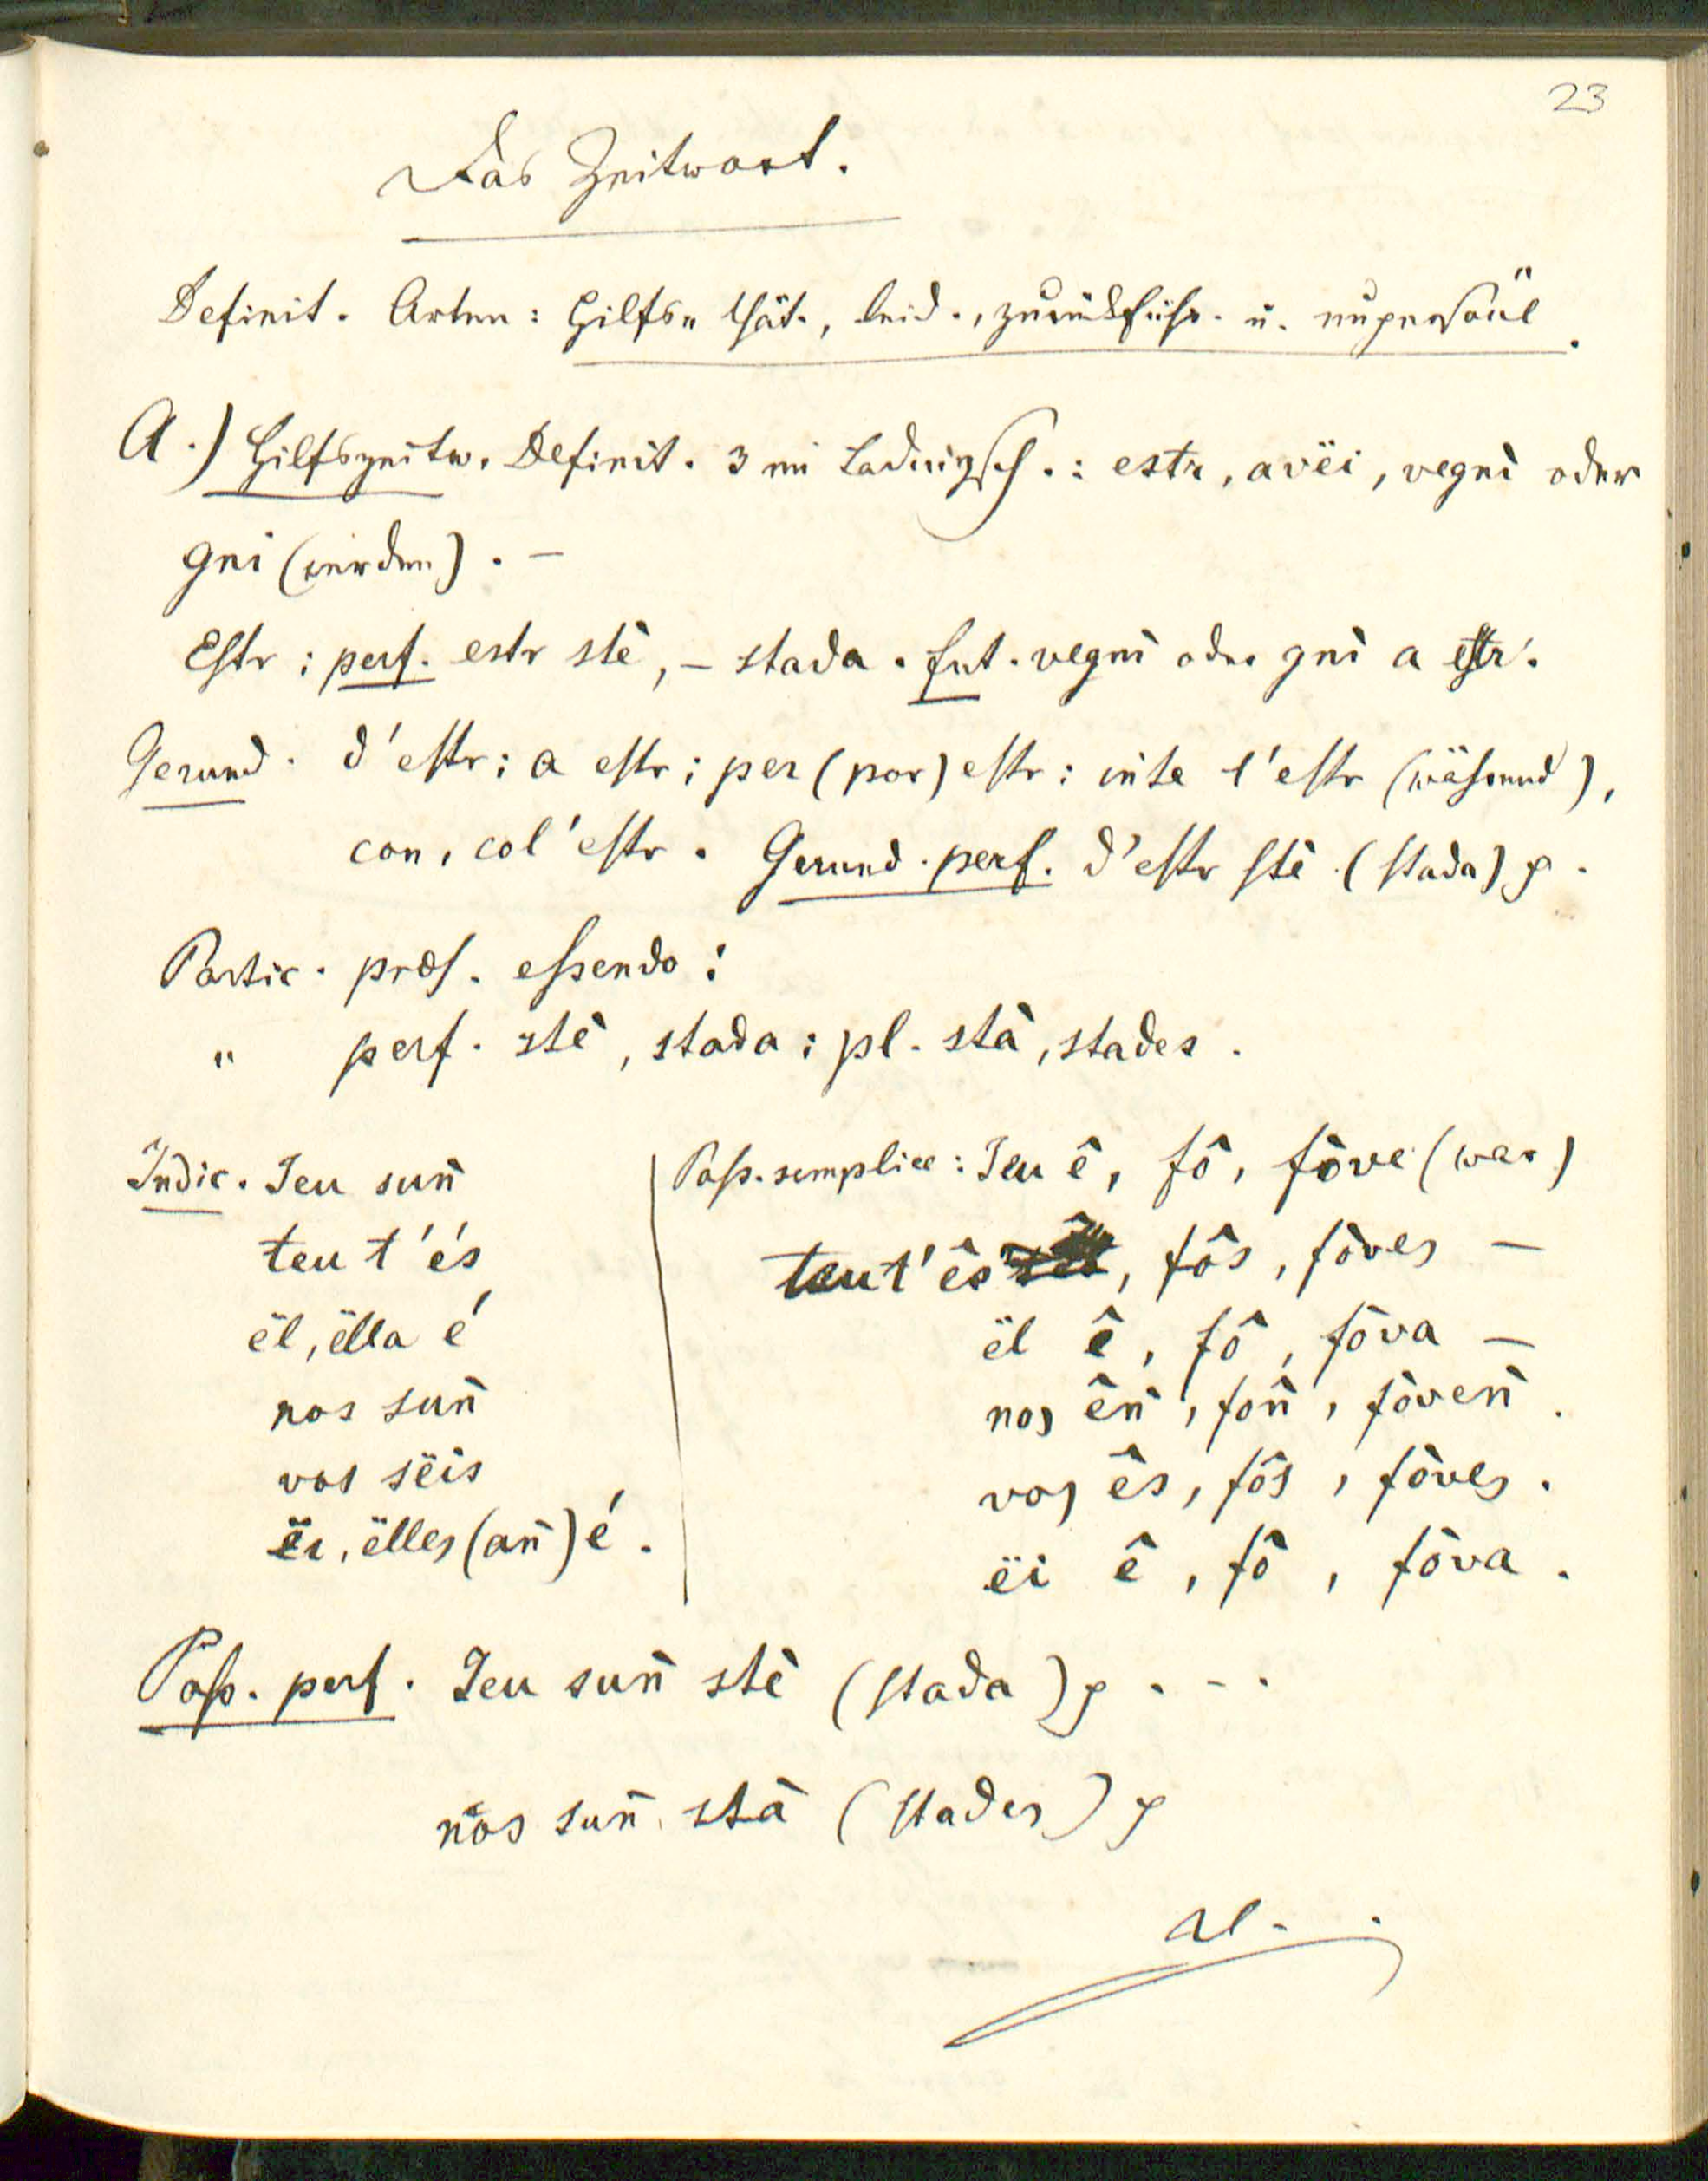 23
Das Zeitwort.
Definit. Arten: Hilfs„ thät., leid., zurückführ. u. unpersönl.
A.) Hilfszeitw. Definit. 3 im Ladinisch.: estr, avëi, vegnì oder
gnì (werden). —
Estr; perf. estr stè, – stada. fut. vegnì oder gnì a estr.
Gerund. d'estr; a estr; per (por) estr; inte l'estr (während),
con, col'estr. Gerund. perf. d'estr stè (stada)
Partic. præs. essendo;
„ perf. stè, stada; pl. stà, stades.
Indic. Ieu sun̄ | Pass. semplice: Ieu ê, fô, fòve (war)
teu t'és | teu t'ês, fôs, fòves —
ël, ëlla é | ël ê, fô, fòva —
nos sun̄ | nos ên̄, fôn̄, fòven̄.
vos sëis | vos ês, fôs, fòves.
ëi, ëlles (an̄) é. | ëi ê, fô, fòva.
Pass. perf. Ieu sun̄ stè (stada) . - .
nos sun̄ stà (stades)